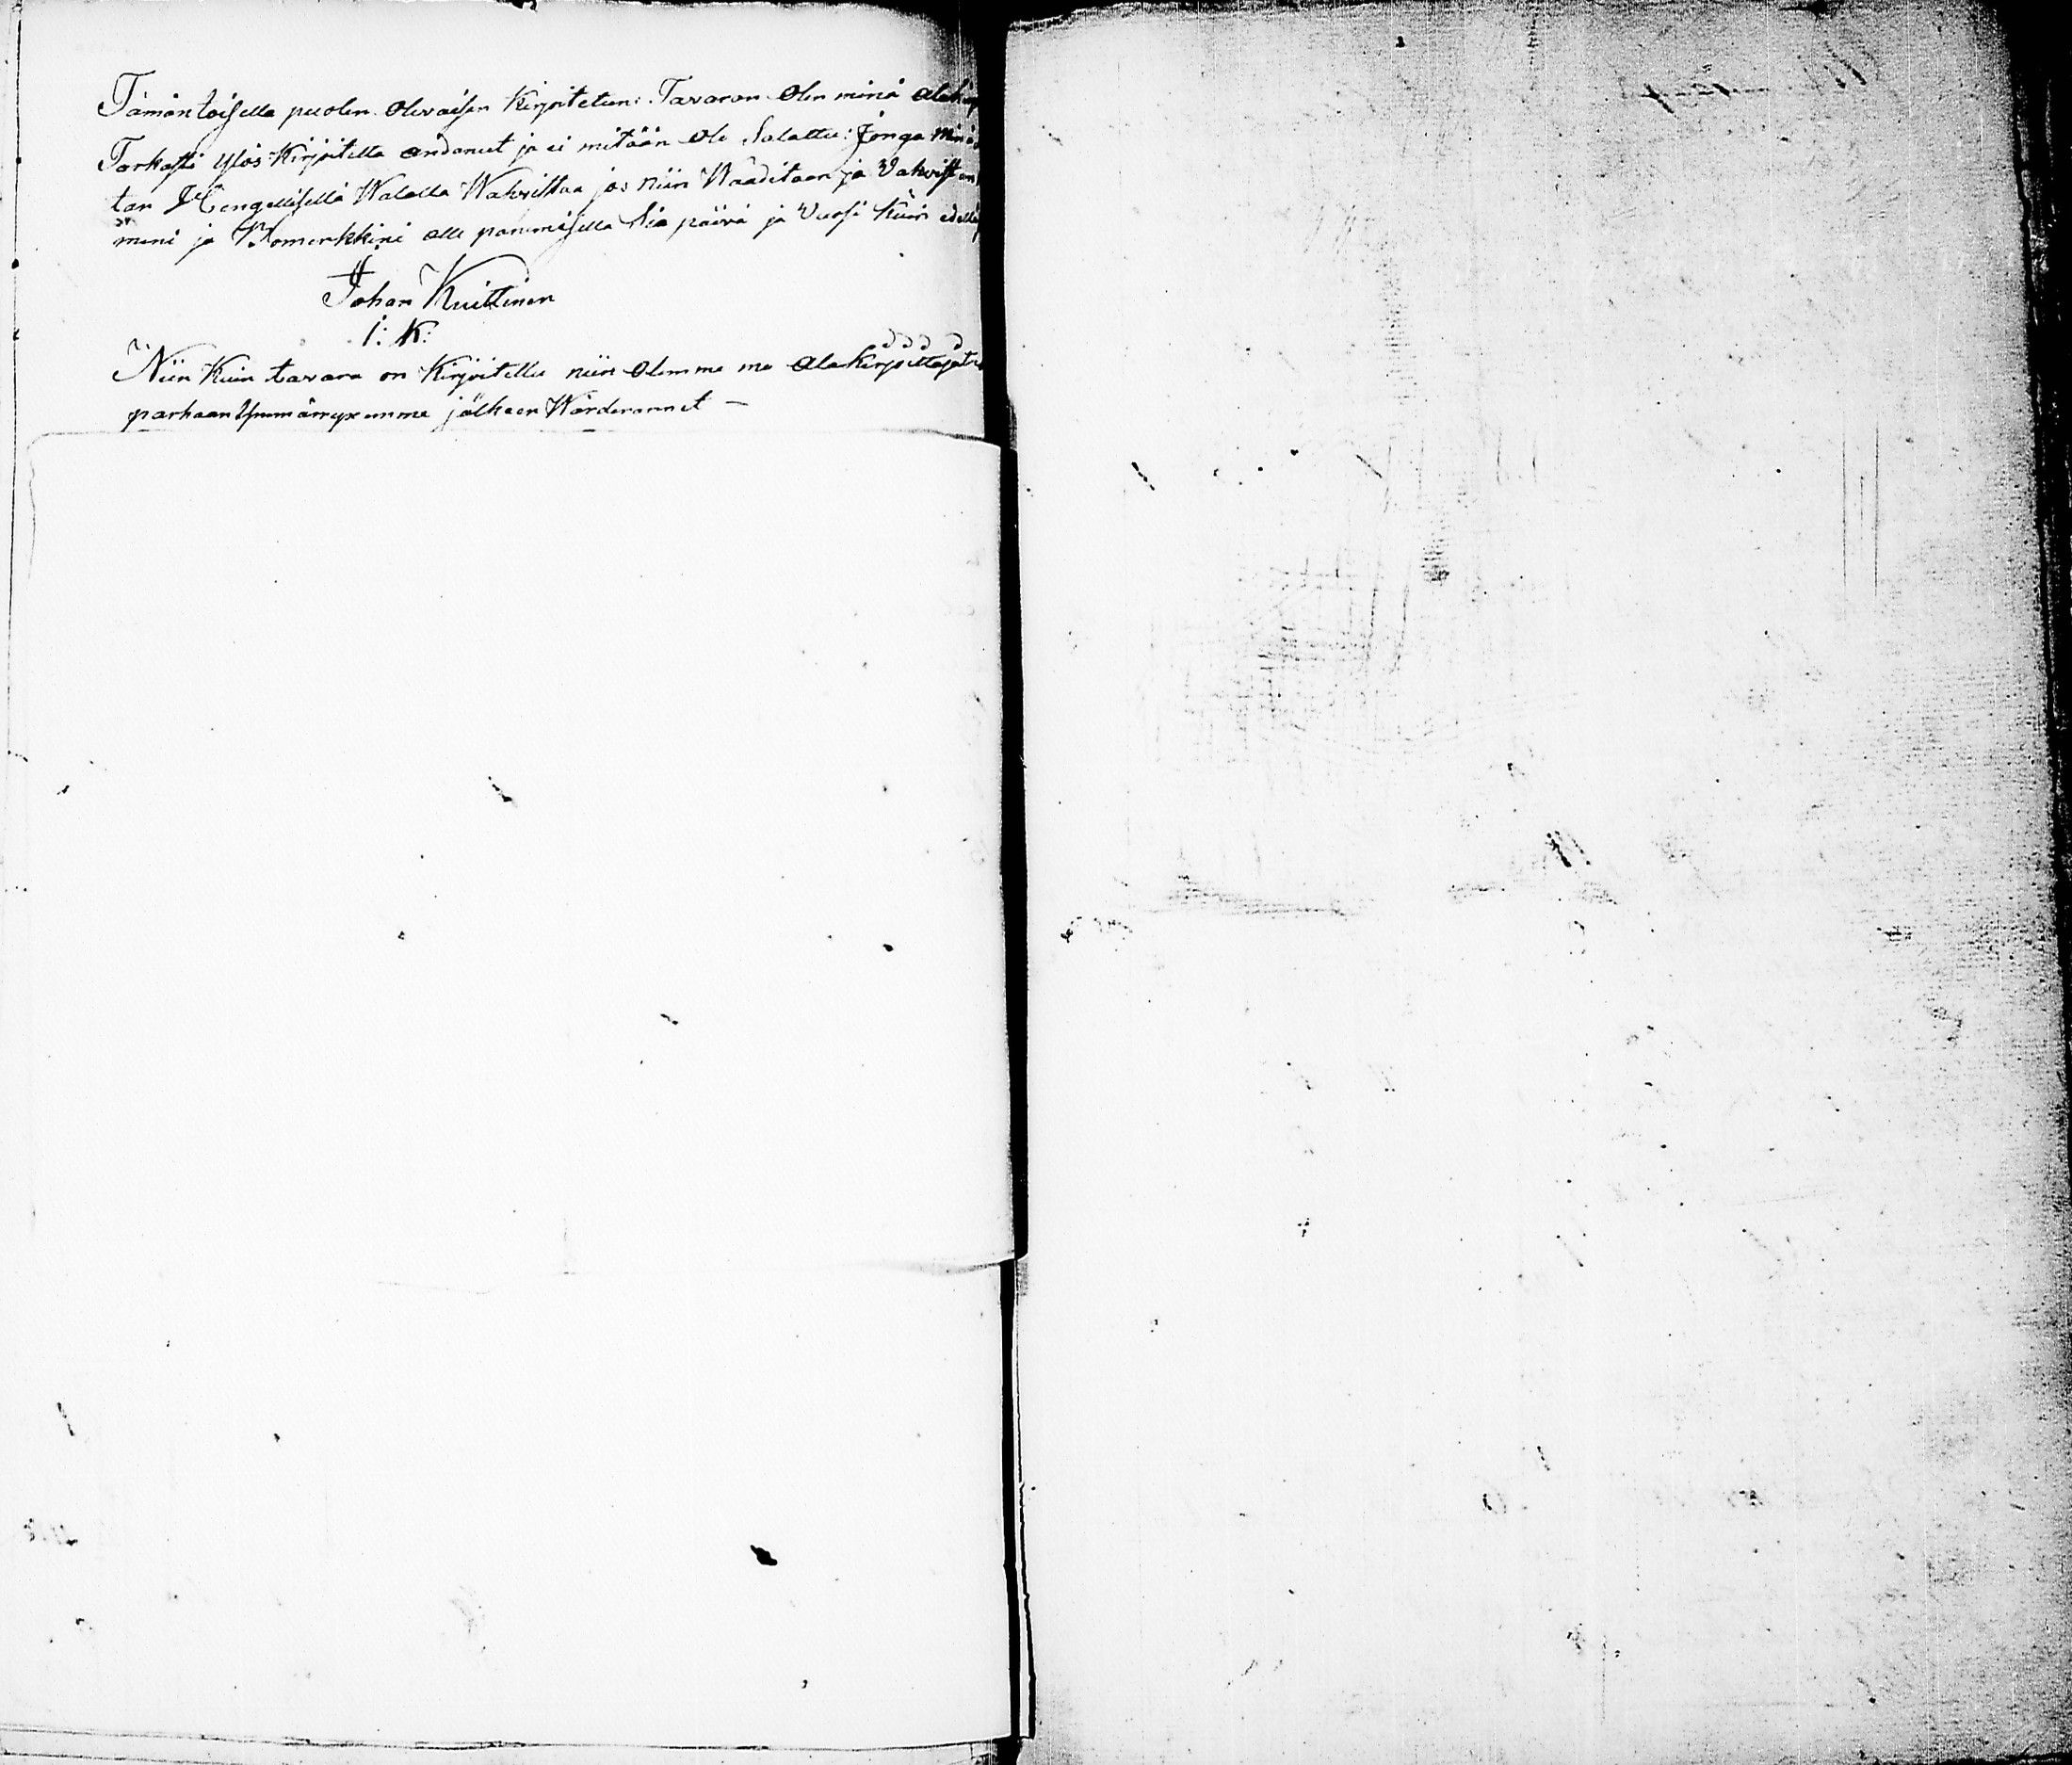 Tämäntoisella puolen olevaisen Kirjoitetun: Tavaran Olen minä alakirj
Tarkasti ylös Kirjoitetta andanut ja ei mitään ole Salattu: Jonga Minä
tan Hengellisellä Walalla Wahvittaa jos niin Waaditaan ja Vahvistan
meni ja Pomerkkini alle panemisella Sia päivä ja Vuosi kuin edellä
Johan Kuittinen
I: K:
Niin Kuin tavara on Kirjoitettu niin Olemme me Alakirjoittajat
parhaan Ymmärryxemme jälkeen Wärderannet —